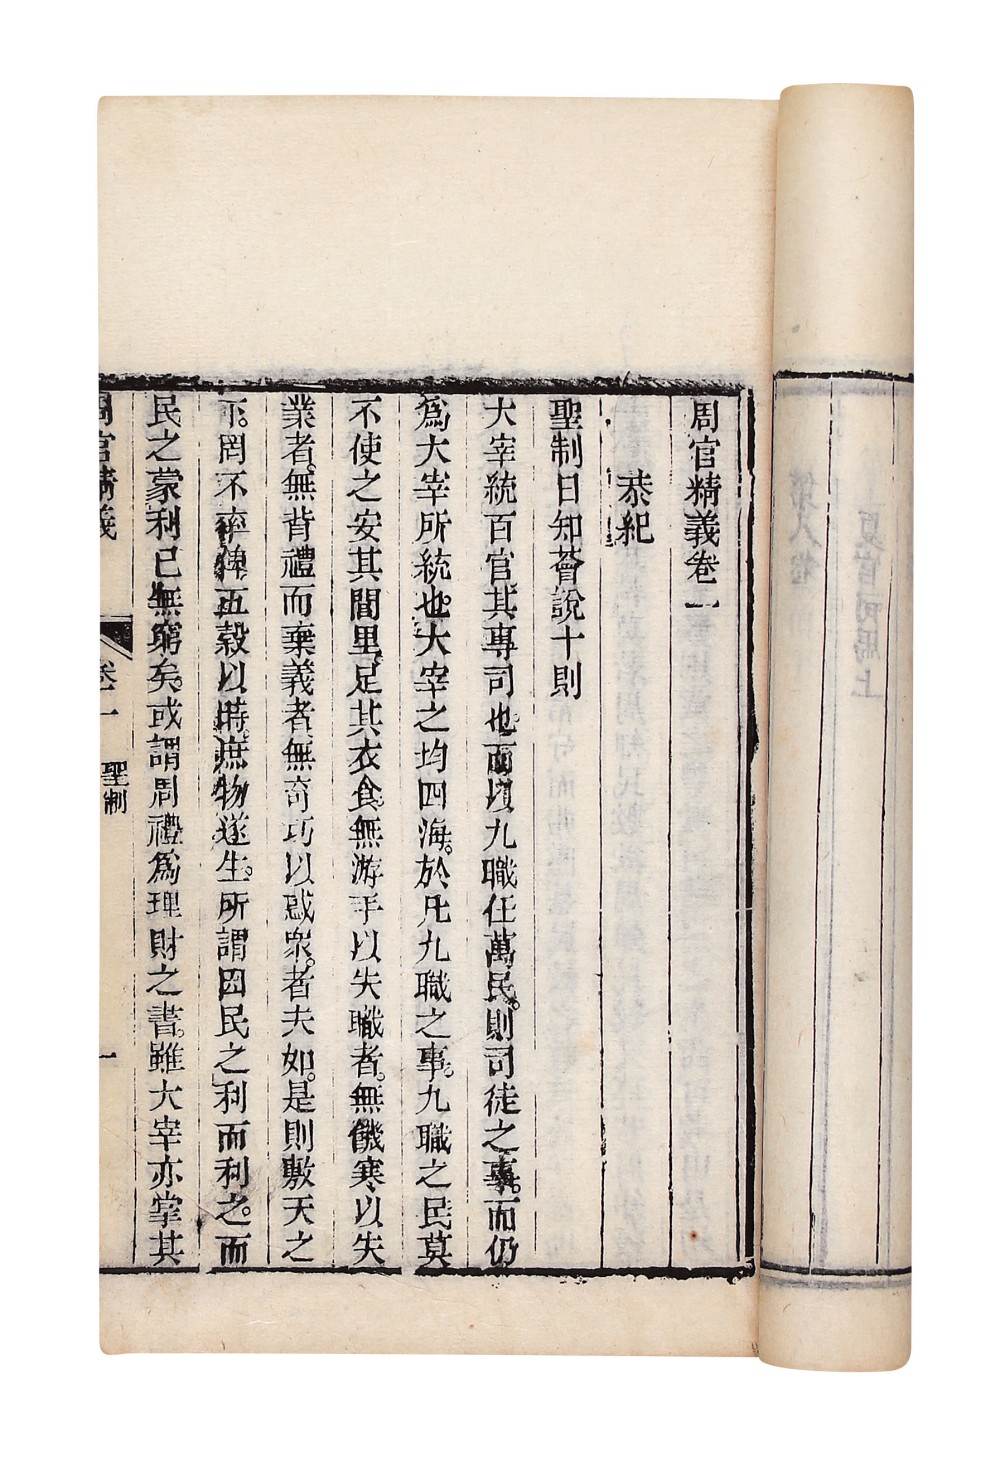 周官精義卷一
恭紀
聖制日知薈說十則
大宰統百官其專司也。而須九職任萬民。則司徒之事。而仍
為大宰所統也。大宰之均四海。於凡九職之事。九職之民莫
不使之安其閭里。足其衣食。無游手以失職者。無饑寒以失
業者。無背禮而棄義者。無奇巧以惑眾。者夫如。是則敷天之
下。罔不率俾五穀以時。庶物遂生。所謂因民之利而利之。而
民之蒙利已無窮矣。或謂周禮為理財之書。雖大宰亦掌其
周官精義 卷一 聖制 一
夏官司馬上
第八卷